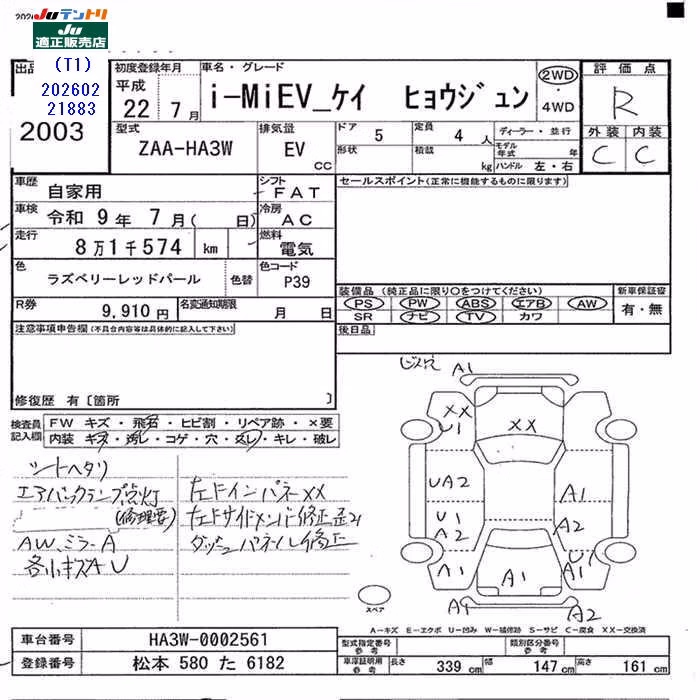 202 Juテントリ
Ju
適正販売店
出品
(T1)
202602
21883
2003
初度登録年月
平成
22年 7月
車名・グレード
i-MiEV_ケイ ヒョウジュン
2WD
・
4WD
評価点
R
外装 内装
C C
型式
ZAA-HA3W
排気量
EV
CC
ドア 5
定員 4人
ディーラー・並行
形状
積載 kg
モデル年式 年
ハンドル 左・右
車歴
自家用
シフト
FAT
セールスポイント(正常に機能するものに限ります)
車検
令和 9年 7月( 日)
冷房
AC
走行
8万1千574 km
燃料
電気
色
ラズベリーレッドパール
色替
色コード
P39
装備品 (純正品に限り○をつけてください)
新車保証書
PS PW ABS エアB AW
有・無
SR ナビ TV カワ
R券
9,910円
名変通知期限
月 日
後日品
注意事項申告欄(不具合内容等は具体的に記入して下さい)
修復歴 有〔箇所 〕
検査員記入欄
FW キズ・飛石・ヒビ割・リペア跡・×要
内装 キズ・汚レ・コゲ・穴・スレ・キレ・破レ
シートヘタリ
エアバックランプ点灯
(修理要)
AW、ミラーA
各小キズAU
左ドインパネXX
左ドサイドメンバー修正歪ミ
ダッシュパネル修正
ビス穴
A1
XX
U1
XX
UA2
A1
U1
A2
A2
A1
A1
U1
A1
A1
A2
スペア
A-キズ E-エクボ U-凹み W-補修跡 S-サビ C-腐食 XX-交換済
車台番号
HA3W-0002561
型式指定番号
参考
類別区分番号
参考
登録番号
松本 580 た 6182
車庫証明用
参考
長さ 339cm
幅 147cm
高さ 161cm